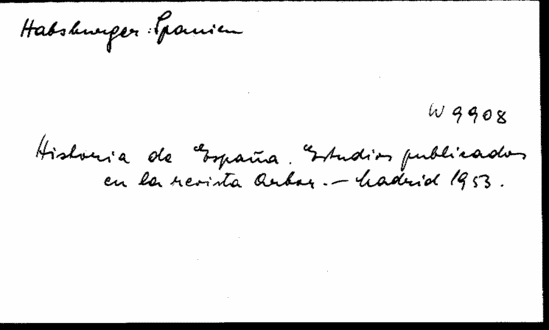 Habsburger: Spanien
W 9908
Historia de España. Estudios publicados
en la revista Arbor. — Madrid 1953.